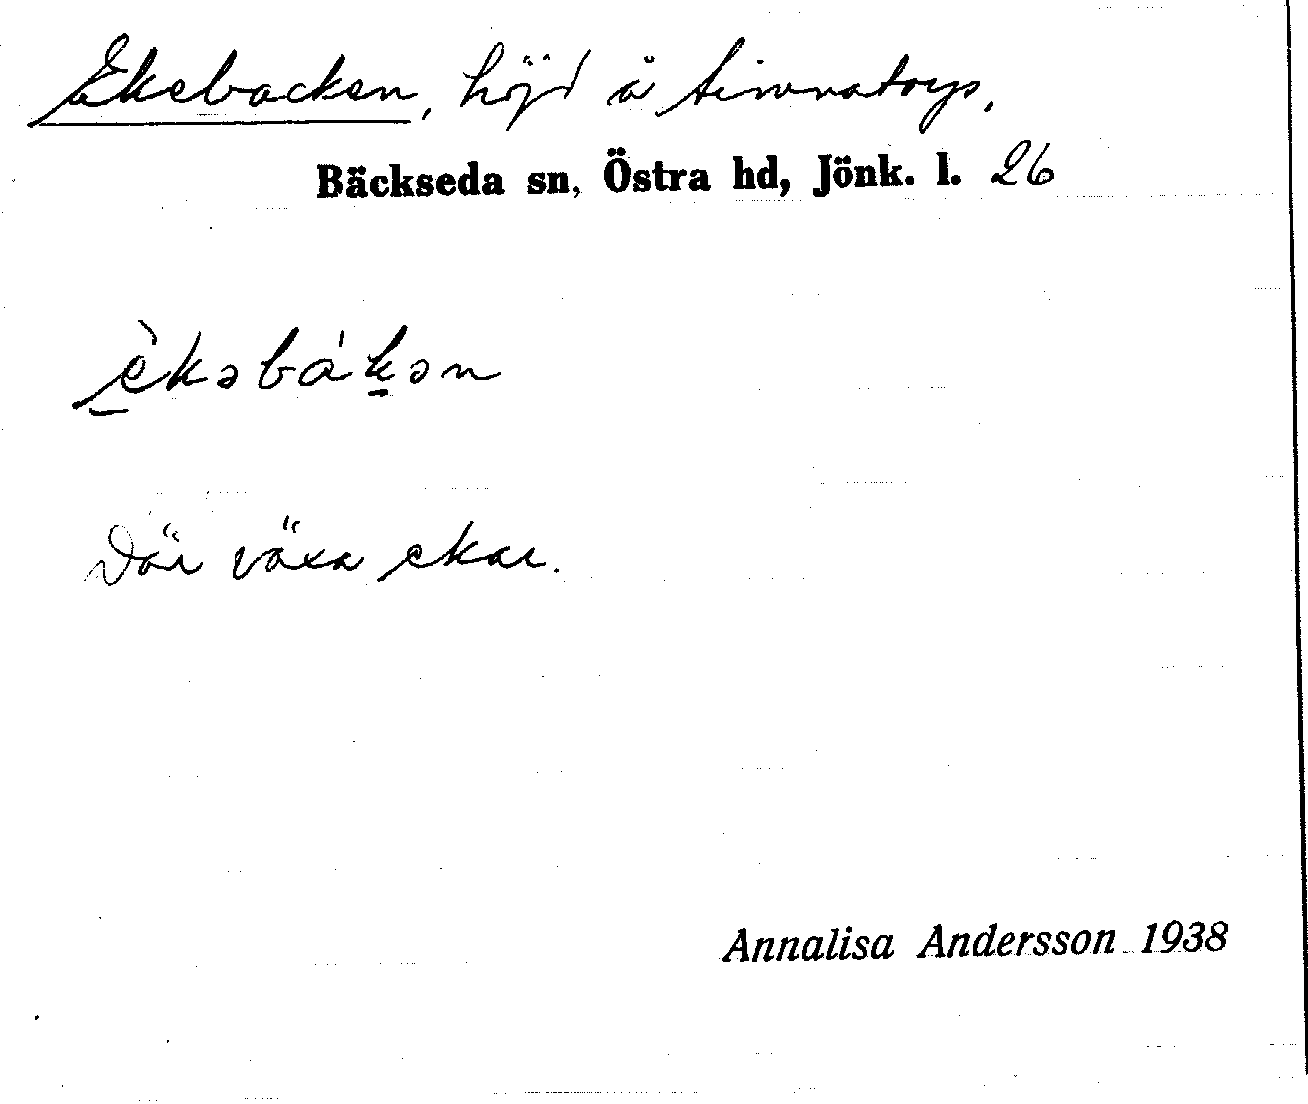 Ekebacken, höjd å Simnatorp.
Bäckseda sn, Östra hd, Jönk. l. 26
èkəbákən
Där växa ekar.
Annalisa Andersson 1938